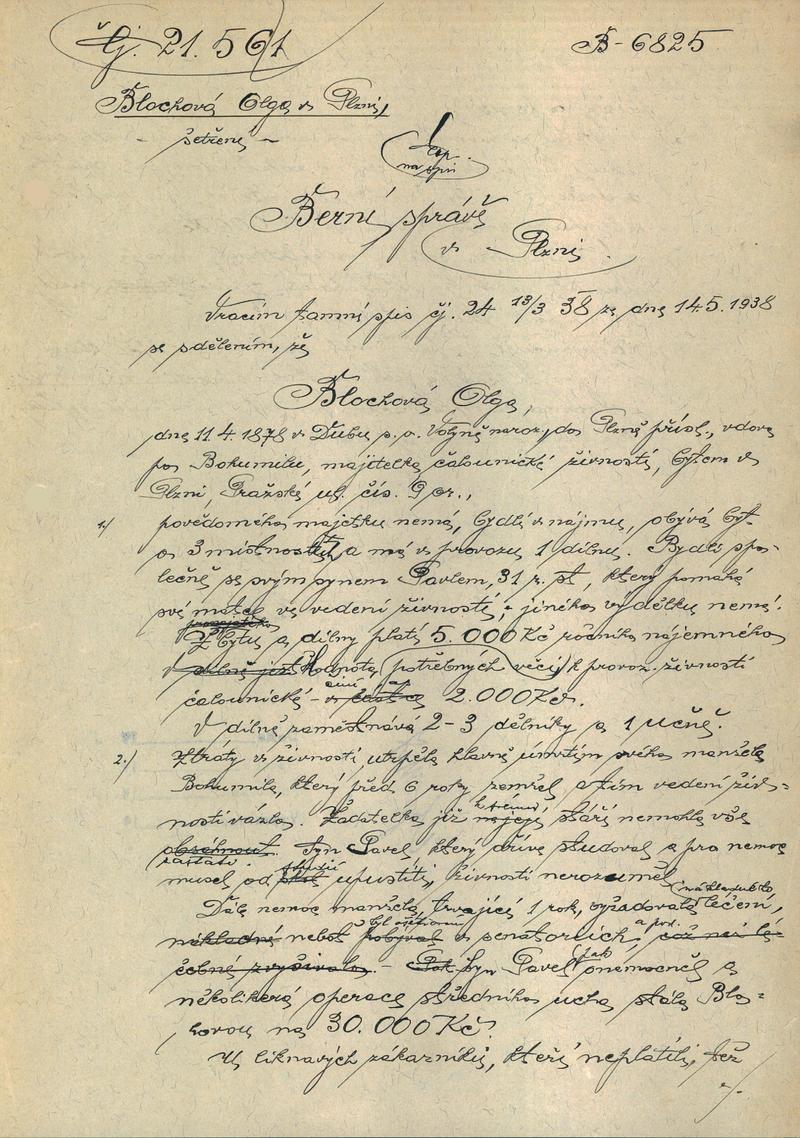 Čj. 21.561 B-6825
Blochová Olga v Plzni,
- šetření -
Berní správě
v Plzni.
Vracím tamní spis čj. 24 13/3 38 ze dne 14.5.1938
se sdělením, že
Blochová Olga,
dne 11.4.1878 v Dubu p.o. Volyně naroz., do Plzně přísl., vdova
po Bohumilu, majitelka čalounické živnosti, bytem v
Plzni, Pražská ul. čís. 9 or.,
1./ povědomého majetku nemá, bydlí v nájmu, obývá byt
o 3 místnostech a má v provozu 1 dílnu. Bydlí spo-
lečně se svým synem Pavlem, 31 r. st., který pomáhá
své matce ve vedení živnosti, jiného výdělku nemá.
Z bytu a dílny platí 5.000 Kč ročního nájemného
v dílně jest Hodnota potřebných věcí k provoz. živnosti
čalounické - činí 2.000 Kč.
V dílně zaměstnává 2-3 dělníky a 1 učně.
2./ Ztráty v živnosti utrpěla hlavně úmrtím svého manžela
Bohumila, který před 6 roky zemřel a tím vedení živ-
nosti vázlo. Žadatelka již k svému její stáří nemohla vše
obsáhnout zastati. Syn Pavel, který dříve studoval a pro nemoc
musel od škol studií upustiti, živnosti nerozuměl.
Dále nemoc manžela, trvající 1 rok, vyžadovala nákladného léčení,
nákladné neboť pobýval byl v senatoriích a pod. což než lé-
čebné - Pak Syn Pavel pak onemocněl a
několikerá operace středního ucha stála Blo-
hovou na 30.000 Kč.
U liknavých zákazníků, kteří neplatili, též
./.